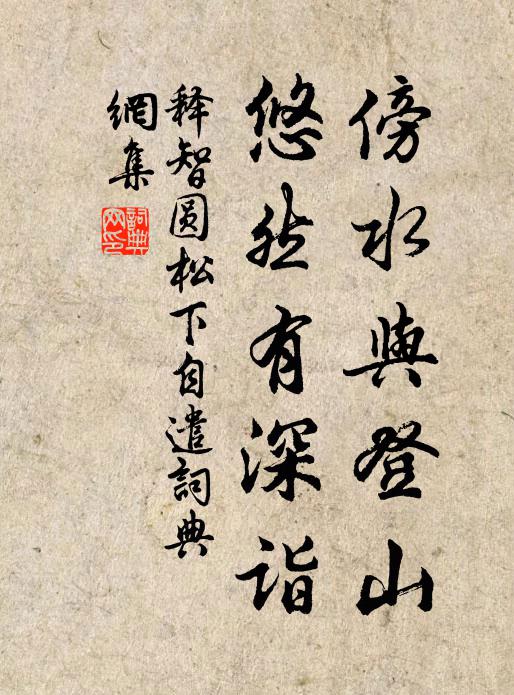 傍水與登山
悠然有深詣
释智圆松下自遣詞典
網集
詞典
网印